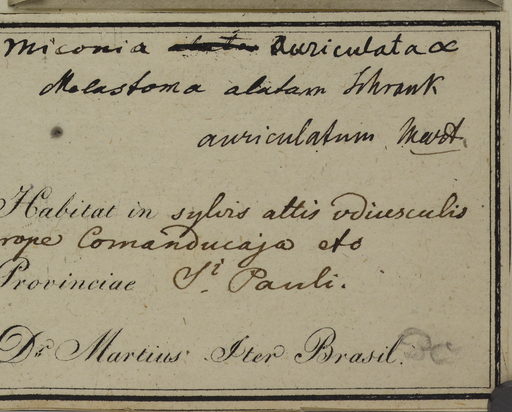 Miconia alata auriculata α
Melastoma alatum Schrank
auriculatum Mart.
Habitat in sylvis altis udiusculis
prope Comanducaja
Provinciae Sti Pauli.
Dr. Martius Iter Brasil.